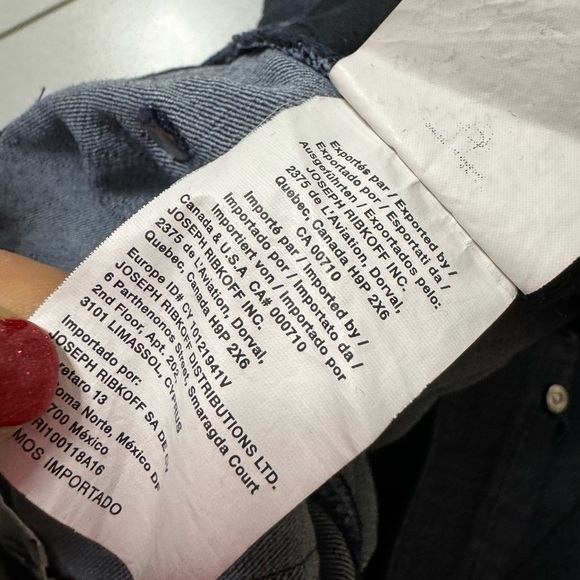 Exportés par / Exported by /
Exportado por / Esportati da /
Ausgeführten / Exportados pelo:
JOSEPH RIBKOFF INC.
2375 de L'Aviation, Dorval,
Quebec, Canada H9P 2X6
CA 00710
Importé par / Imported by /
Importado por / Importato da /
Importiert von / Importado por
Canada & U.S.A. CA# 000710
JOSEPH RIBKOFF INC.
2375 de l'Aviation, Dorval,
Quebec, Canada H9P 2X6
Europe ID# CY 10121941V
JOSEPH RIBKOFF DISTRIBUTIONS LTD.
6 Parthenonos Street, Smaragda Court
2nd Floor, Apt. 202,
3101 LIMASSOL, CYPRUS
Importado por:
JOSEPH RIBKOFF SA DE
retaro 13
oma Norte, México
700 México
RI100118A16
MOS IMPORTADO